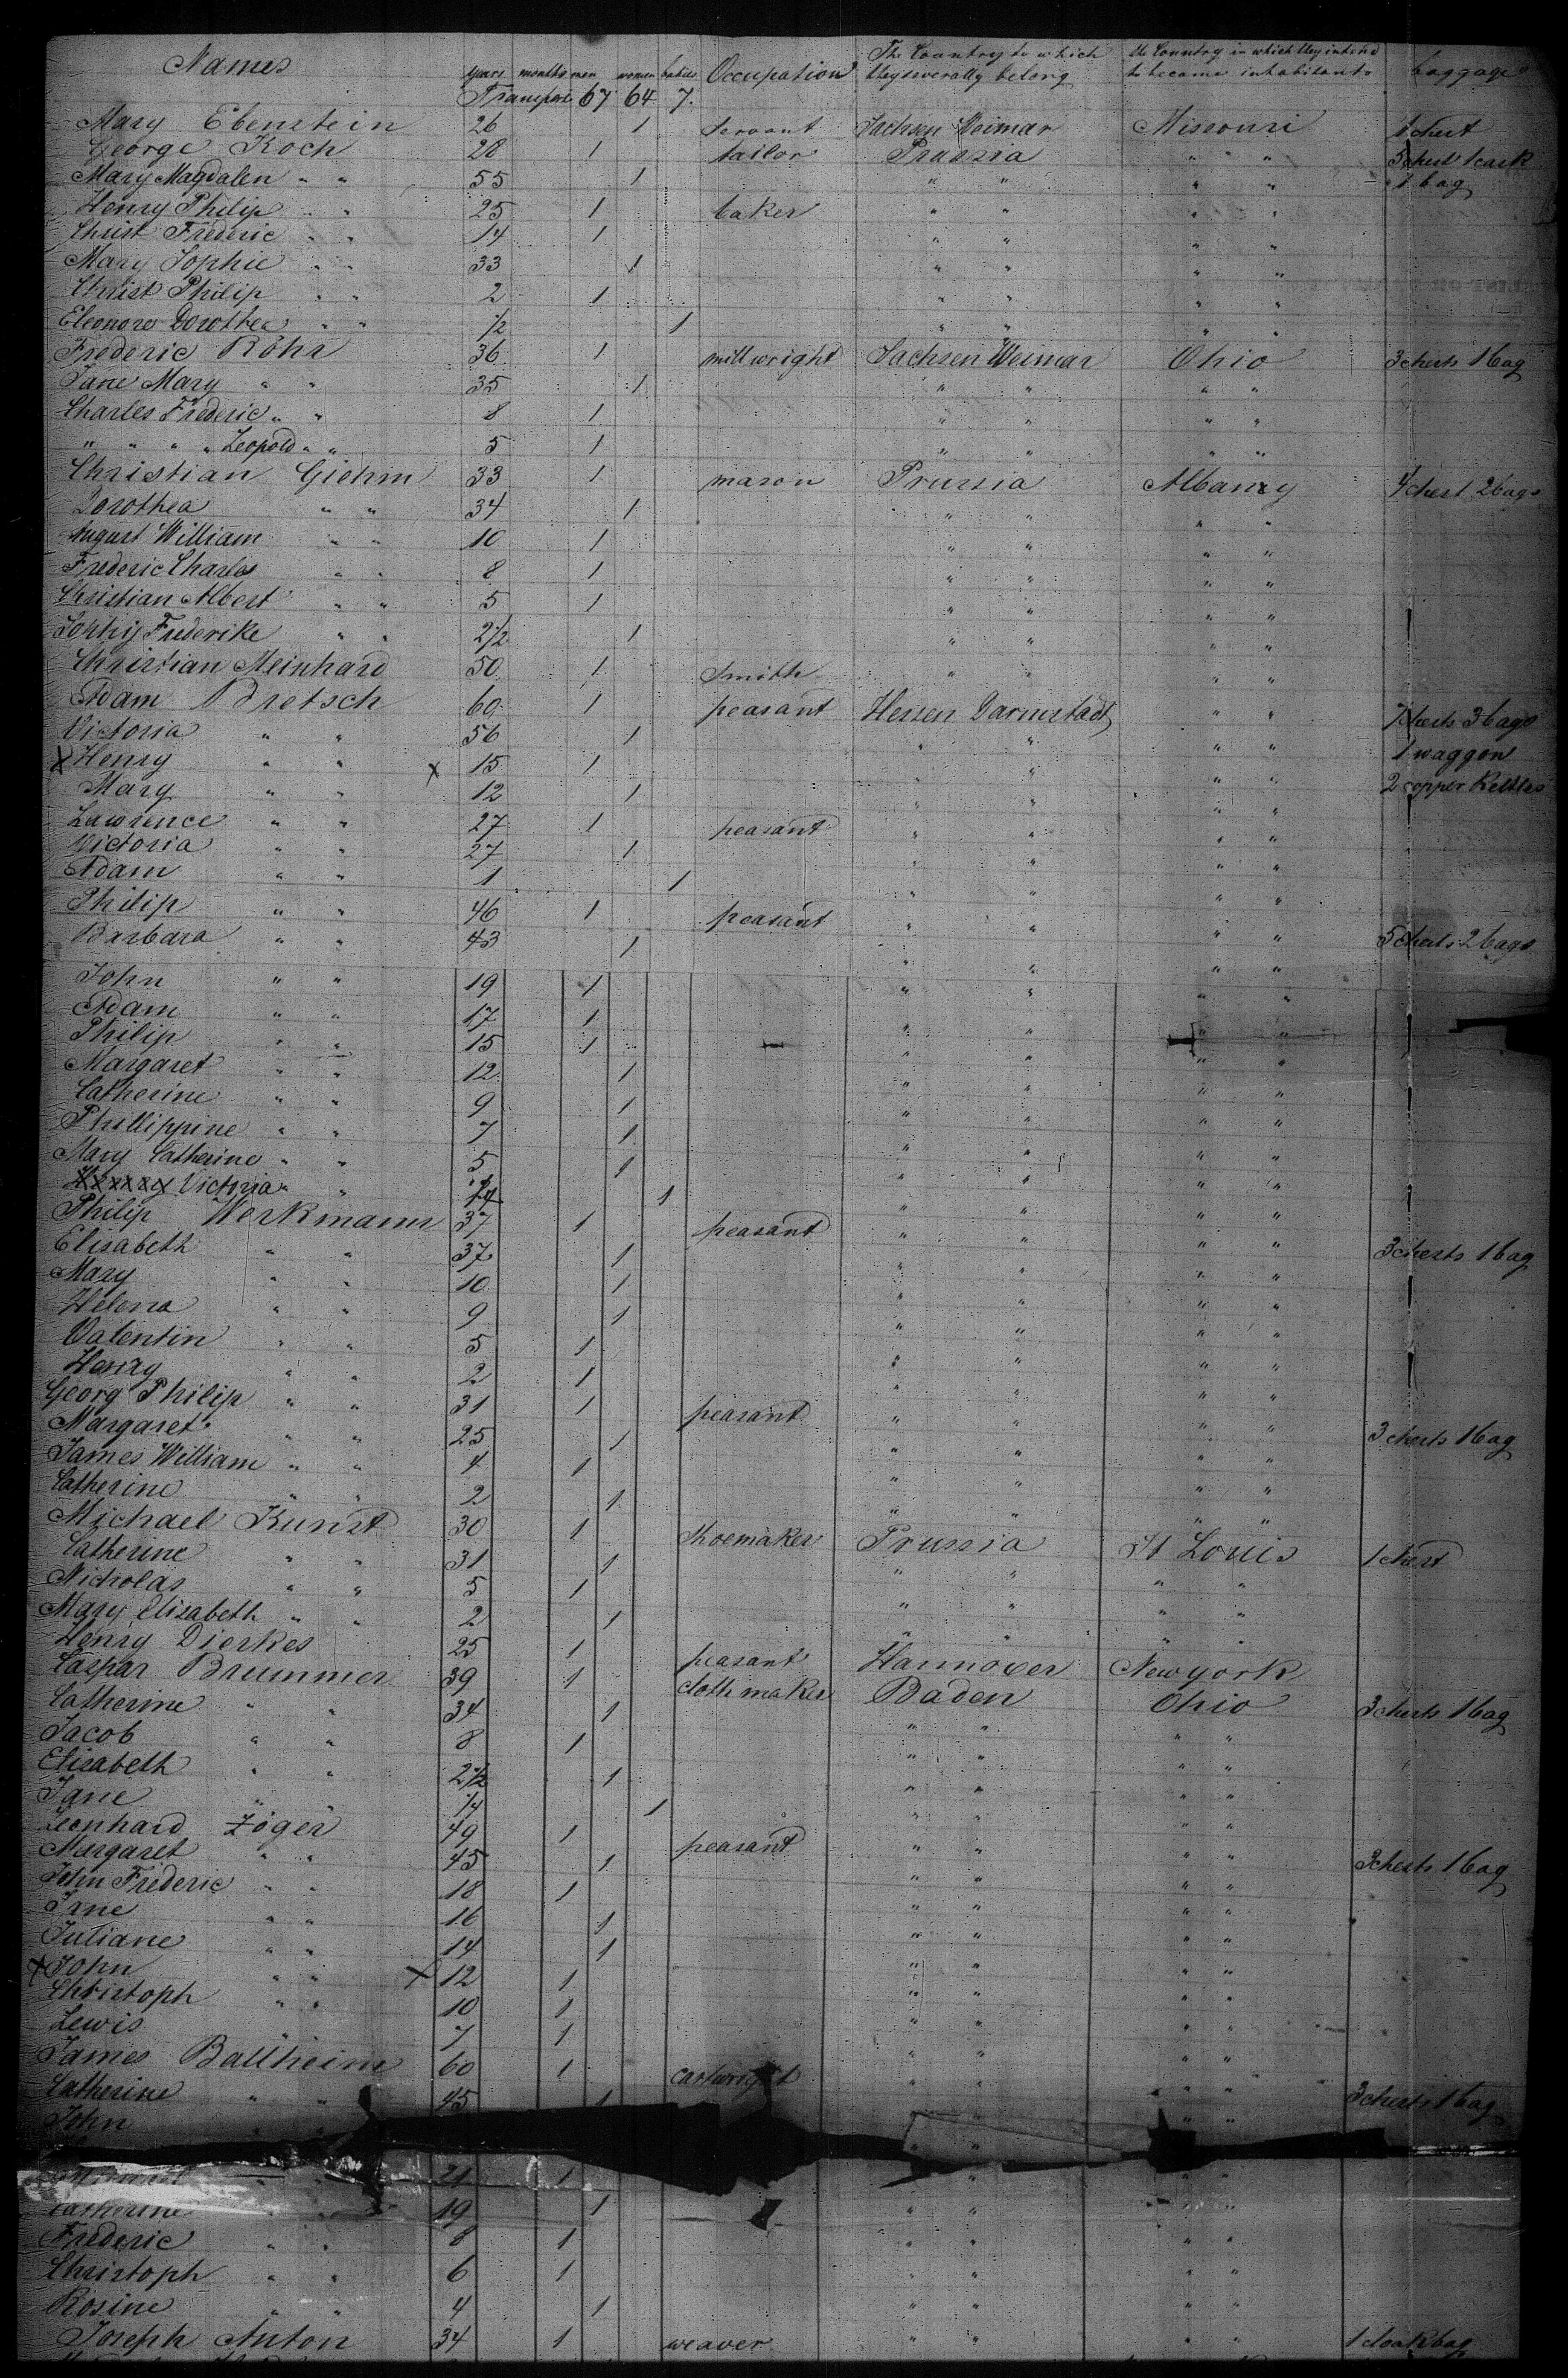 Names years months men women babies Occupation The Country to which they severally belong the Country in which they intend to become inhabitants baggage
Transport 67 64 7.
Mary Ebenstein 26 1 servant Sachsen Weimar Missouri 1 chest
George Koch 28 1 tailor Prussia " " 5 chest 1 cask
Mary Magdalen " " 55 1 " " " " 1 bag
Henry Philip " " 25 1 baker " " " "
Christ Frederic " " 14 1 " " " "
Mary Sophie " " 33 1 " " " "
Christ Philip " " 2 1 " " " "
Eleonore Dorothea " " 1/2 1 " " " "
Frederic Röhr 36 1 millwright Sachsen Weimar Ohio 3 chests 1 bag
Jane Mary " " 35 1 " " " "
Charles Frederic " " 8 1 " " " "
" " " " Leopold " " 5 1 " " " "
Christian Giehm 33 1 mason Prussia Albany 4 chest 2 bags
Dorothea " " 34 1 " " " "
August William " " 10 1 " " " "
Frederic Charles " " 8 1 " " " "
Christian Albert " " 5 1 " " " "
Sophy Frederike " " 2 1/2 1 " " " "
Christian Meinhard 50 1 smith " " " "
Adam Bretsch 60 1 peasant Hessen Darmstadt " " 7 chests 3 bags
Victoria " " 56 1 " " " " 1 waggon
x Henry " " x 15 1 " " " " 2 copper Kettles
Mary " " 12 1 " " " "
Lawrence " " 27 1 peasant " " " "
Victoria " " 27 1 " " " "
Adam " " 1 1 " " " "
Philip " " 46 1 peasant " " " "
Barbara " " 43 1 " " " " 5 chests 2 bags
John " " 19 1 " " " "
Adam " " 17 1 " " " "
Philip " " 15 1 " " " "
Margaret " " 12 1 " " " "
Catherine " " 9 1 " " " "
Phillippine " " 7 1 " " " "
Mary Catherine " " 5 1 " " " "
Victoria " " 1 " " " "
Philip Werkmann 37 1 peasant " " " "
Elisabeth " " 37 1 " " " " 3 chests 1 bag
Mary " " 10 1 " " " "
Helena " " 9 1 " " " "
Valentin " " 5 1 " " " "
Henry " " 2 1 " " " "
Georg Philip " " 31 1 peasant " " " "
Margaret " " 25 1 " " " " 3 chests 1 bag
James William " " 4 1 " " " "
Catherine " " 2 1 " " " "
Michael Kunst 30 1 shoemaker Prussia St Louis 1 chest
Catherine " " 31 1 " " " "
Nicholas " " 5 1 " " " "
Mary Elizabeth " " 2 1 " " " "
Henry Dierkes 25 1 peasant Hannover Newyork
Caspar Brummer 39 1 cloth maker Baden Ohio 3 chests 1 bag
Catherine " " 34 1 " " " "
Jacob " " 8 1 " " " "
Elisabeth " " 2 1/2 1 " " " "
Jane " " 1/4 1 " " " "
Leonhard Zöger 49 1 peasant " " " "
Margaret " " 45 1 " " " " 3 chests 1 bag
John Frederic " " 18 1 " " " "
Jane " " 16 1 " " " "
Juliane " " 14 1 " " " "
x John " " x 12 1 " " " "
Christoph " " 10 1 " " " "
Lewis " 7 1 " " " "
James Ballheim 60 1 cartwright " " " "
Catherine " " 45 1 " " " " 3 chests 1 bag
John
21 1 " "
Catherine 19 1 " " " "
Frederic " " 8 1 " " " "
Christoph " " 6 1 " " " "
Rosine " " 4 1 " " " "
Joseph Anton 34 1 weaver " " " " 1 cloakbag